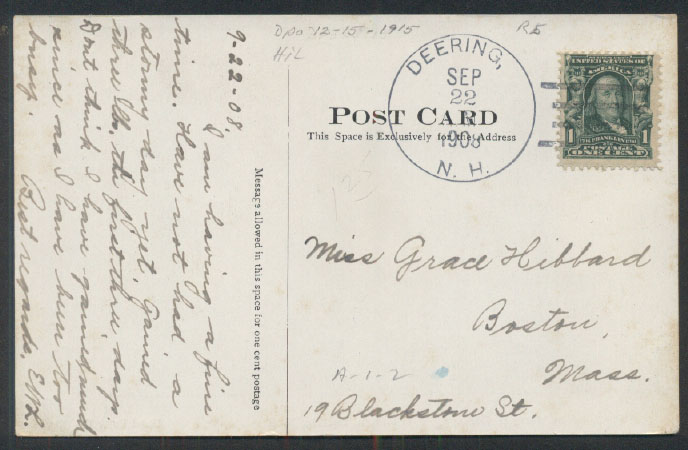 9-22-08.
I am having a fine
time. Have not had a
stormy day yet. Gained
three lb. the first three days.
Dont think I have gained much
since as I have been too
busy.
Best regards, E.W.L.
Message allowed in this space for one cent postage
Dpo 12-15-1915
Hil
RE
DEERING,
SEP
22
1908
N. H.
POST CARD
This Space is Exclusively for the Address
UNITED STATES
OF AMERICA
1 1
FRANKLIN
POSTAGE
ONE CENT
123
Miss Grace Hibbard
Boston,
Mass.
A-1-2
19 Blackstone St.